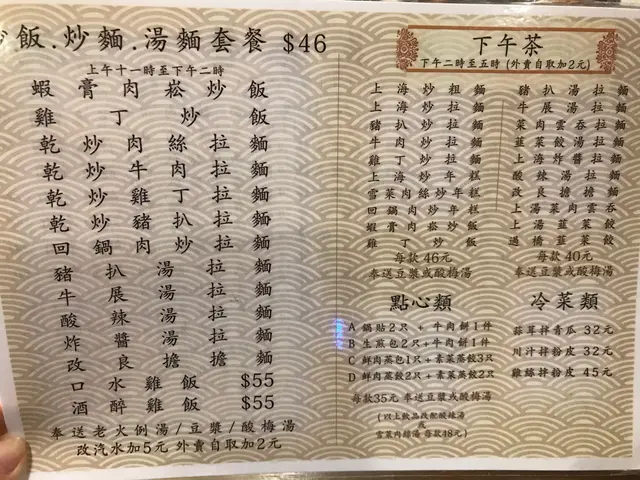 飯.炒麵.湯麵套餐 $46
上午十一時至下午二時
蝦膏肉崧炒飯
雞丁炒飯
乾炒肉絲拉麵
乾炒牛肉拉麵
乾炒雞丁拉麵
乾炒豬扒拉麵
回鍋肉炒拉麵
豬扒湯拉麵
牛展湯拉麵
酸辣湯拉麵
炸醬湯拉麵
改良擔擔麵
口水雞飯 $55
酒醉雞飯 $55
奉送老火例湯/豆漿/酸梅湯
改汽水加5元 外賣自取加2元
下午茶
下午二時至五時 (外賣自取加2元)
上海炒粗麵
上海炒拉麵
豬扒炒拉麵
牛肉炒拉麵
雞丁炒拉麵
上海炒年糕
雪菜肉絲炒年糕
回鍋肉炒年糕
蝦膏肉崧炒飯
雞丁炒飯
每款46元
奉送豆漿或酸梅湯
豬扒湯拉麵
牛展湯拉麵
菜肉雲吞拉麵
韮菜餃湯拉麵
上海炸醬拉麵
酸辣湯拉麵
改良擔擔麵
上湯菜肉雲吞
上湯韮菜餃
過橋韮菜餃
每款40元
奉送豆漿或酸梅湯
點心類
A 鍋貼2只 + 牛肉餅1件
B 生煎包2只 + 牛肉餅1件
C 鮮肉蒸包1只 + 素菜蒸餃3只
D 鮮肉蒸餃2只 + 素菜蒸餃2只
每款35元 奉送豆漿或酸梅湯
(以上飲品改配酸辣湯
或
雪菜肉絲湯 每款48元)
冷菜類
蒜茸拌青瓜 32元
川汁拌粉皮 32元
雞絲拌粉皮 45元